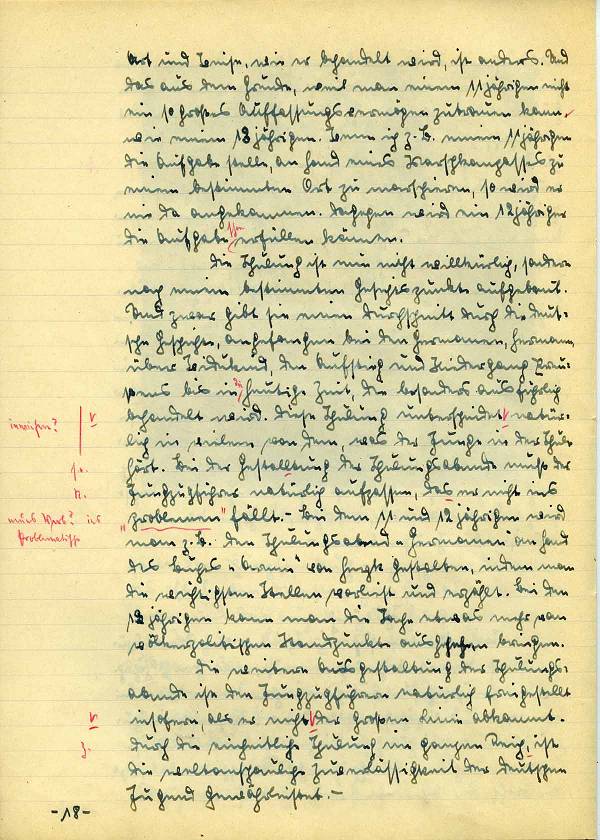 Art und Weise, wie er behandelt wird, ist anders. Und
das aus dem Grunde, weil man einem 11 jährigen nicht
ein so großes Auffassungsvermögen zutrauen kann,
wie einem 13 jährigen. Wenn ich z. B. einem 11 jährigen
die Aufgabe stelle, an Hand eines Marschkompasses zu
einem bestimmten Ort zu marschieren, so wird er
nie da angekommen. Dagegen wird ein 12 jähriger
die Aufgabe schon erfüllen können.
Die Schulung ist nun nicht willkürlich, sondern
nach einem bestimmten Gesichtspunkte aufgebaut.
Und zwar gibt sie einen Durchschnitt durch die deut-
sche Geschichte, angefangen bei den Germanen, Hermann
über Widukind, den Aufstieg und Niedergang Preu-
ßens bis in die heutige Zeit, die besonders ausführlich
behandelt wird. Diese Schulung unterscheidet natür-
inwiefern? V
lich in vielem von dem, was der Junge in der Schule
hört. Bei der Gestaltung der Schulungsabende muß der
Jungzugführer natürlich aufpassen, das er nicht ins
R.
„problemen" fällt. - Bei dem 11 und 12 jährigen wird
neues Wort? ins
Problematische
man z. B. den Schulungsabend „Germanen" an Hand
des Buches „Armin" von gestalten, indem man
die wichtigsten Stellen vorliest und erzählt. Bei den
13 jährigen kann man die Sache etwas mehr vom
völkerpolitischen Standpunkte aus bringen.
Die weitere Ausgestaltung der Schulungs-
abende ist den Jungzugführern natürlich freigestellt
insofern, als er nicht der großen Linie abkommt.
V
Durch die einheitliche Schulung im ganzen Reich, ist
die weltanschauliche Zuverlässigkeit der deutschen
Jugend gewährleistet. -
- 18 -